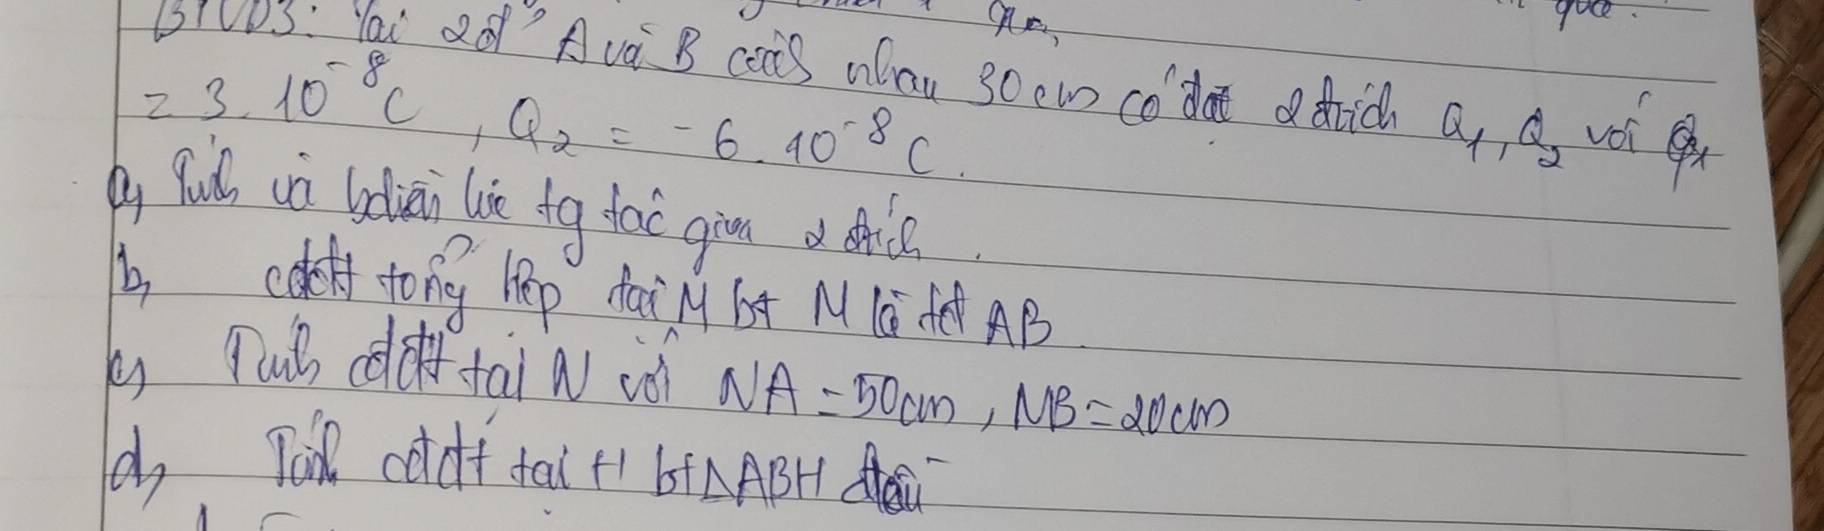 BTVD3: Tại 2đ' A và B cách nhau 30cm có đặt 2 đtích Q₁, Q₂ với Q₁
= 3.10⁻⁸C, Q₂ = -6.10⁻⁸C.
a, Tính và bdiễn lực tg tác giữa 2 đtích.
b, cđđtt tổng hợp tại M bt M là tđ AB
c, Tính cđđtt tại N với NA = 50cm, NB = 20cm
d, Tính cđđtt tại H bt ΔABH đều